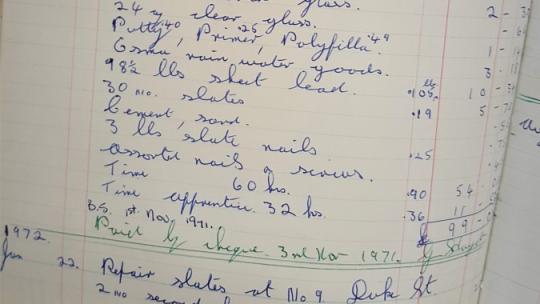 glass.
24 oz clear glass. 2 -
Putty ·40, Primer ·25, Polyfilla ·49
Osma rain water goods. 1 -
98½ lbs sheet lead. lb ·105 3
30 no. slates ·19 10 -
Cement, sand. 5 -
3 lbs slate nails ·25
assorted nails & screws.
Time 60 hrs. ·90 54 -
Time apprentice 32 hrs ·36
B.S. 1st Nov. 1971. £ 99 -
Paid by cheque. 3rd Nov 1971.
1972.
Jan 22. Repair slates at No 9. Duke St.
2 no second